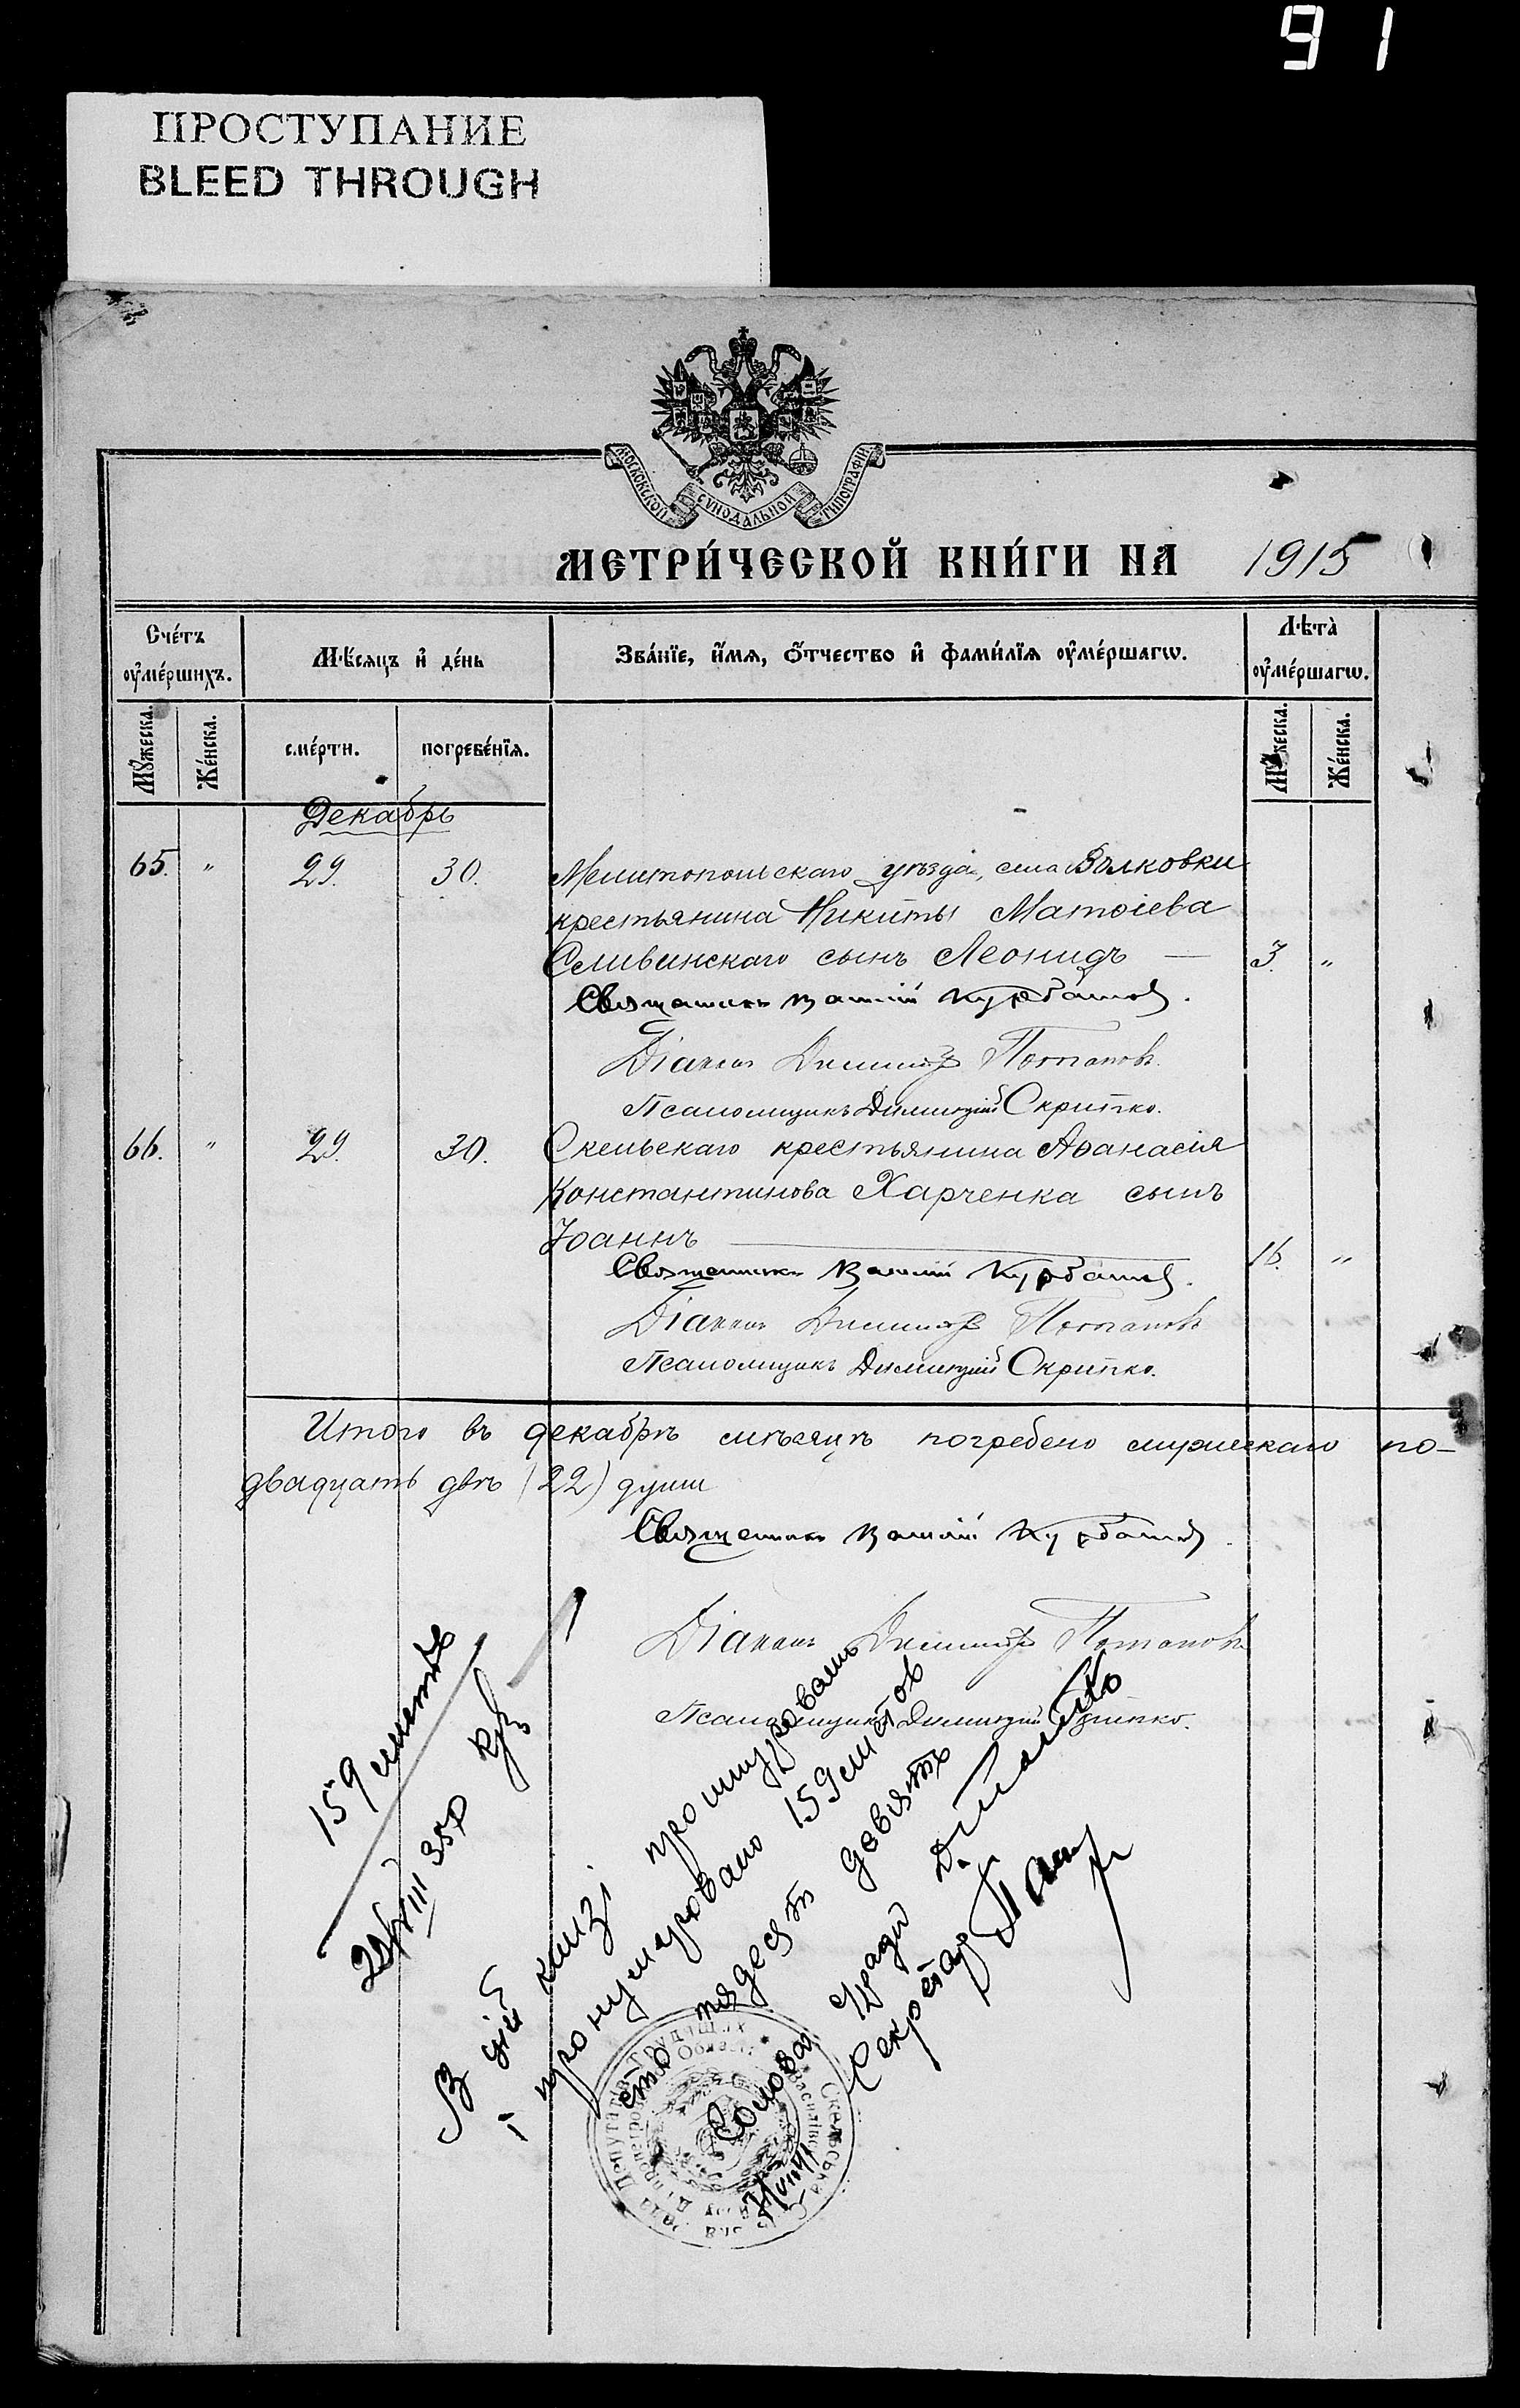 91
ПРОСТУПАНИЕ
BLEED THROUGH
МОСКОВСКОЙ СѴНОДАЛЬНОЙ ТИПОГРАФІИ
МЕТРИ́ЧЕСКОЙ КНИ́ГИ НА 1915
Сче́тъ оу҆ме́ршихъ.
Мѣ́сяцъ и҆ де́нь
Зва́нїе, и҆́мя, ѻ҆́тчество и҆ фами́лїя оу҆ме́ршагѡ.
Лѣта̀ оу҆ме́ршагѡ.
Мꙋ́жеска.
Же́нска.
сме́рти.
погребе́нїя.
Мꙋ́жеска.
Же́нска.
Декабрь
65. " 29. 30. Мелитопольскаго уѣзда, села Вѣлковки
крестьянина Никиты Матѳіева
Сливинскаго сынъ Леонидъ — 3. "
Священникъ Василій Курбатов.
Діаконъ Димитр Потаповъ.
Псаломщикъ Димитрій Скрипко.
66. " 29. 30. Скельскаго крестьянина Аѳанасія
Константинова Харченка сынъ
Іоаннъ — 16. "
Священникъ Василій Курбатов.
Діаконъ Димитр Потаповъ
Псаломщикъ Димитрій Скрипко.
Итого въ декабрѣ мѣсяцѣ погребено мужескаго по-
двадцать двѣ (22) души
Священникъ Василій Курбатов.
Діаконъ Димитр Потаповъ
Псаломщикъ Димитрій Скрипко.
159 листов
VIII 35р
В цій книзі прошнуровань
і пронумеровано 159 листов
сто пядесят девять
Голова с/ради
Секретар
Скельська
Депутатів Трудящих